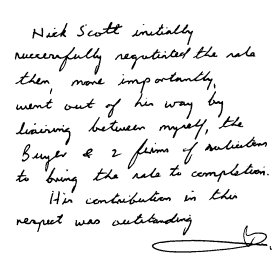 Nick Scott initially
successfully negotiated the sale
then, more importantly,
went out of his way by
liaising between myself, the
Buyer & 2 firms of solicitors
to bring the sale to completion.
His contribution in this
respect was outstanding